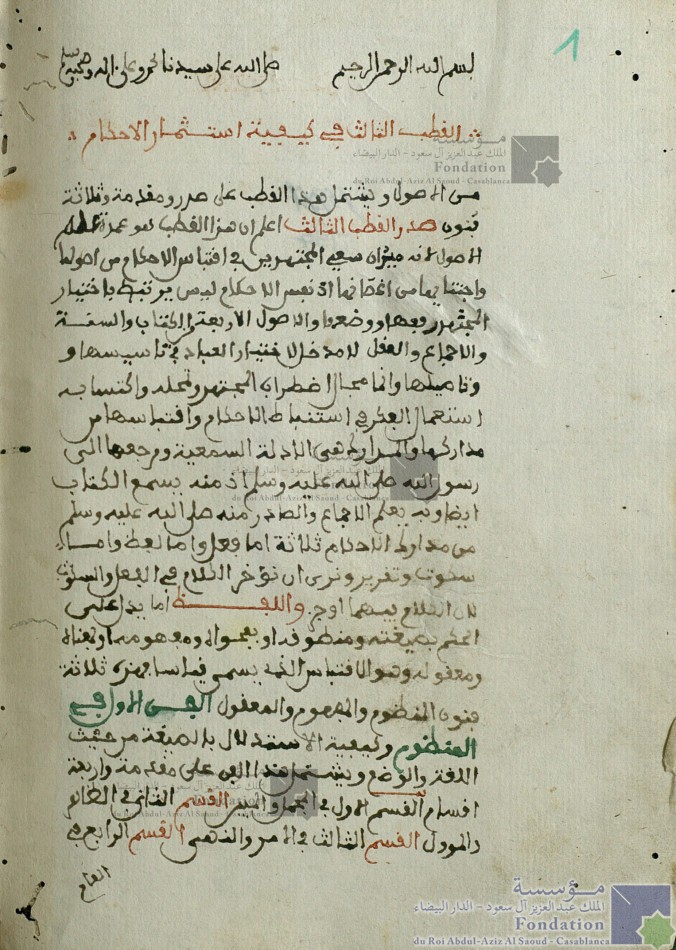 1
بسم الله الرحمن الرحيم صلى الله على سيدنا محمد وعلى اله وصحبه وسلم
القطب الثالث في كيفية استثمار الاحكام
من الاصول ويشتمل هذا القطب على صدر ومقدمة وثلاثة
فنون صدر القطب الثالث اعلم ان هذا القطب هو عمدة علم
الاصول لانه ميدان سعي المجتهدين في اقتباس الاحكام من اصولها
واجتنايها من اغصانها اذ نفس الاحكام ليس يرتبط باختيار
المجتهد رفعها ووضعها والاصول الاربعة من الكتاب والسنة
والاجماع والعقل لا مدخل لاختيار العباد في تاسيسها و
وتاصيلها وانما مجال اضطراب المجتهد ومحله واكتسابه
استعمال الفكر في استنباط الاحكام واقتباسها من
مداركها والمدارك هي الادلة السمعية ومرجعها الى
رسول الله صلى الله عليه وسلم اذ منه يسمع الكتاب
ايضا وبه يعلم الاجماع والصادر منه صلى الله عليه وسلم
من مدارك الاحكام ثلاثة اما فعل واما لفظ واما
سكوت وتقرير ونرى ان نوخر الكلام في الفعل والسكوت
لان الكلام فيهما اوجز واللفظ اما يدل على
الحكم بصيغته ومنظومه او بفحواه ومفهومه او بمعناه
ومعقوله وهو الاقتباس الذي يسمى قياسا فهذه ثلاثة
فنون المنظوم والمفهوم والمعقول الفن الاول في
المنظوم وكيفية الاستدلال بالصيغة من حيث
اللغة والوضع ويشتمل هذا الفن على مقدمة واربعة
اقسام القسم الاول في المجمل والمبين القسم الثاني في الظاهر
والموول القسم الثالث في الامر والنهي القسم الرابع في
العام
مؤسسة
الملك عبد العزيز آل سعود - الدار البيضاء
Fondation
du Roi Abdul-Aziz Al Saoud - Casablanca